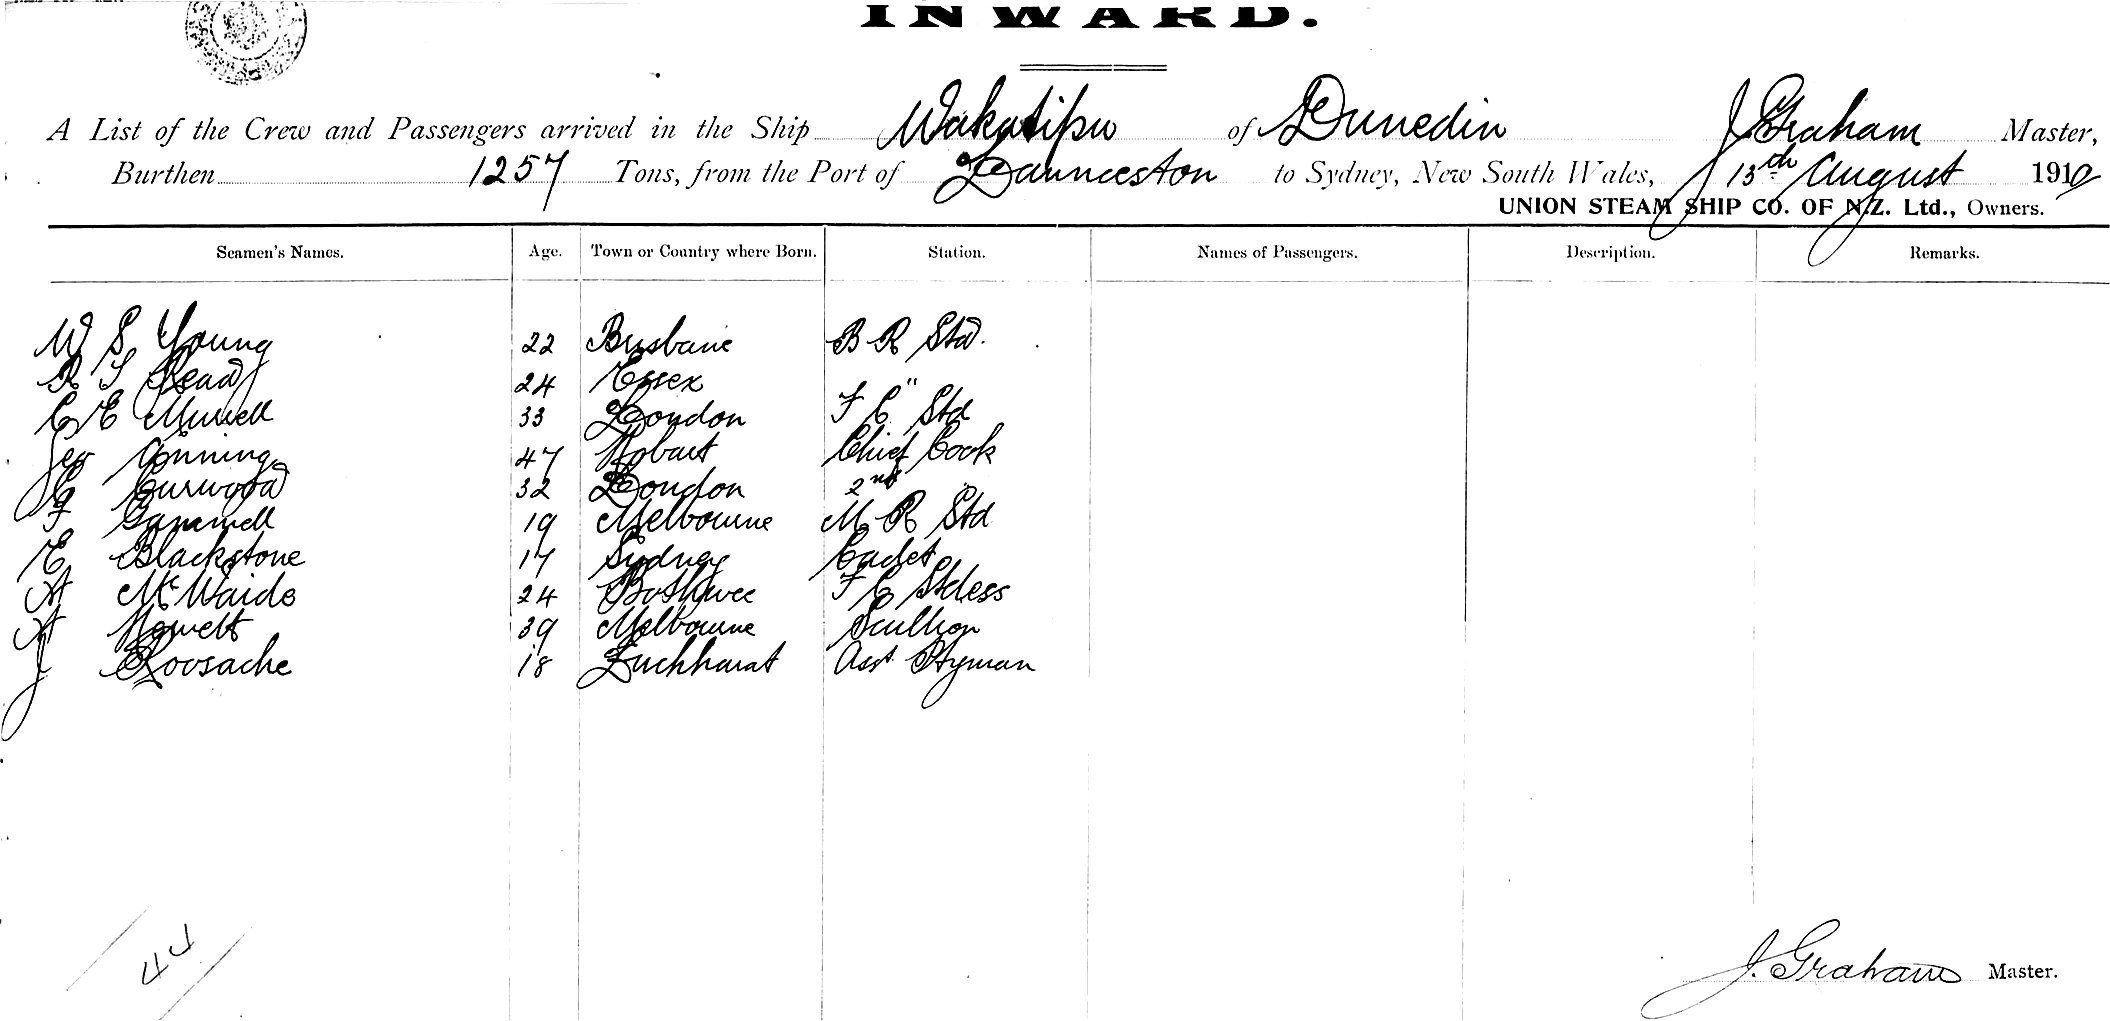 INWARD.
A List of the Crew and Passengers arrived in the Ship Wakatipu of Dunedin J Graham Master,
Burthen 1257 Tons, from the Port of Launceston to Sydney, New South Wales, 13th August 1910
UNION STEAM SHIP CO. OF N.Z. Ltd., Owners.
Seamen's Names. Age. Town or Country where Born. Station. Names of Passengers. Description. Remarks.
W S Young 22 Brisbane B R Std.
R S Read 24 Essex "
C E Murrell 33 London F C Std
Geo Anning 47 Hobart Chief Cook
G Curwood 32 London 2nd
F Gammell 19 Melbourne M R Std
E Blackstone 17 Sydney Cadet
A McWaide 24 Bothwell F C Stdess
A Howett 39 Melbourne Scullion
J 18 Asst Ptyman
44
J. Graham Master.